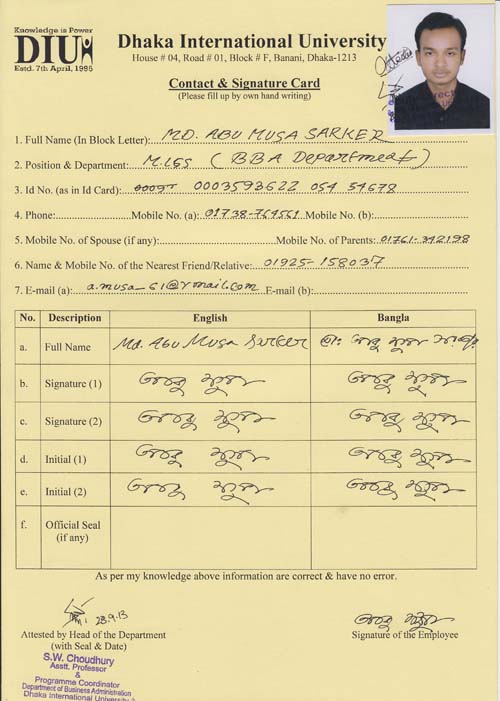 Knowledge is Power
DIU
Estd. 7th April, 1995
Dhaka International University
House # 04, Road # 01, Block # F, Banani, Dhaka-1213
Contact & Signature Card
(Please fill up by own hand writing)
1. Full Name (In Block Letter): MD. ABU MUSA SARKER
2. Position & Department: M.LSS (BBA Department)
3. Id No. (as in Id Card): 0003593622 054 54678
4. Phone: Mobile No. (a): 01738-764561 Mobile No. (b):
5. Mobile No. of Spouse (if any): Mobile No. of Parents: 01761-342198
6. Name & Mobile No. of the Nearest Friend/Relative: 01925-158037
7. E-mail (a): a.musa_61@ymail.com E-mail (b):
No. Description English Bangla
a. Full Name Md. Abu Musa Sarker মো: আবু মুসা সরকার
b. Signature (1) আবু মুসা আবু মুসা
c. Signature (2) আবু মুসা আবু মুসা
d. Initial (1) আবু মুসা আবু মুসা
e. Initial (2) আবু মুসা আবু মুসা
f. Official Seal
(if any)
As per my knowledge above information are correct & have no error.
23.9.13 আবু মুসা
Attested by Head of the Department Signature of the Employee
(with Seal & Date)
S.W. Choudhury
Asstt. Professor
&
Programme Coordinator
Department of Business Administration
Dhaka International University